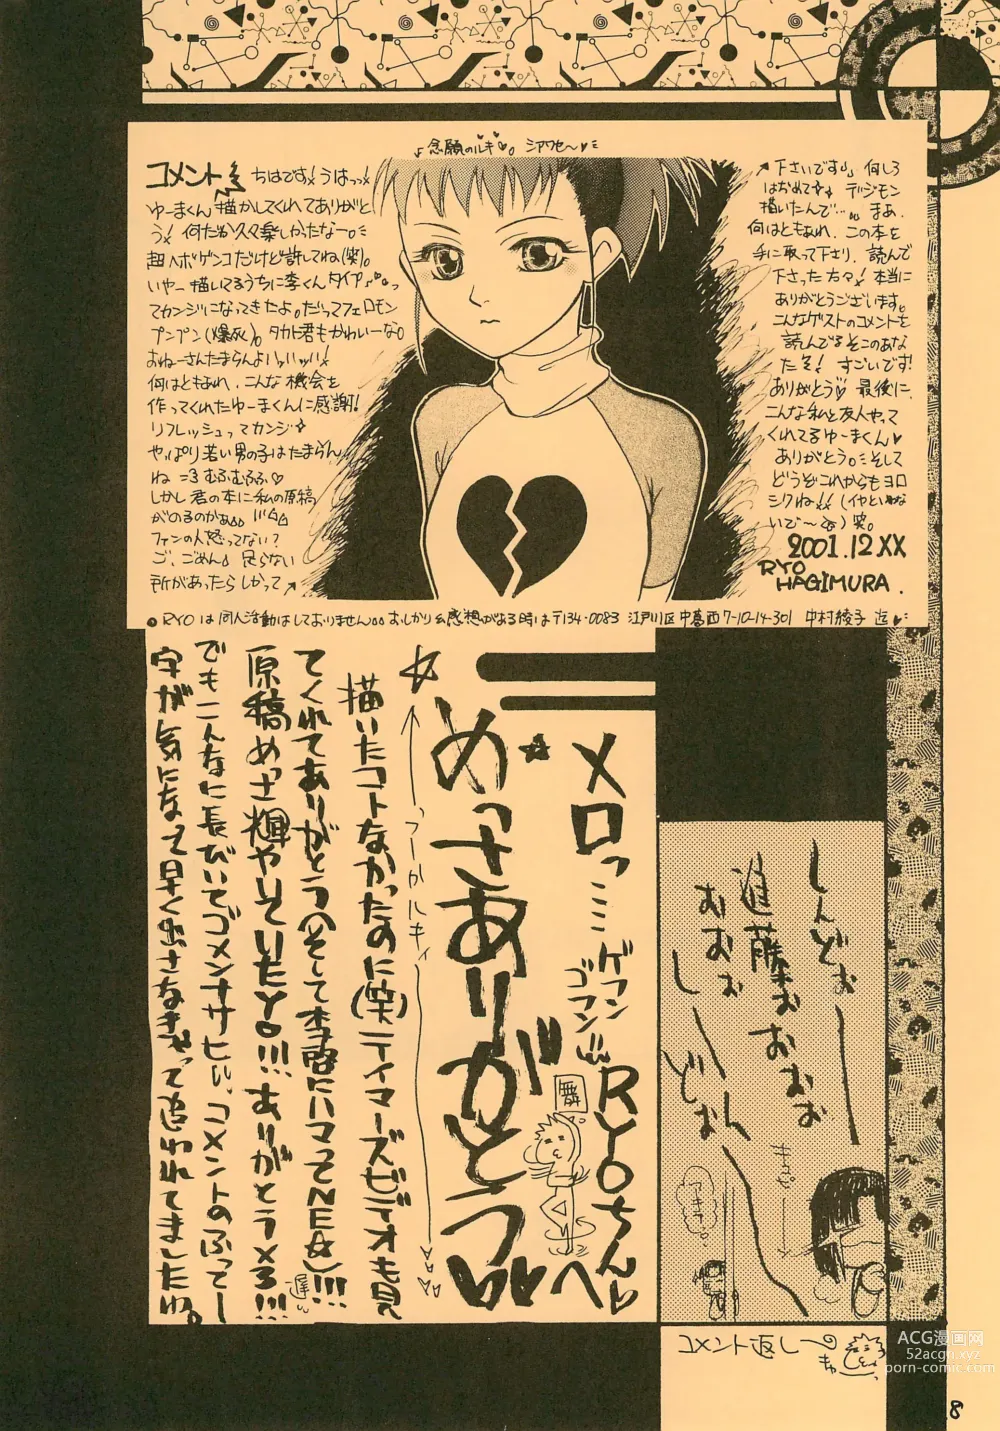 ♪念願のルキ♥。シアワセ〜♥
コメント
ちはです！うはっっ
ゆーまくん描かしてくれてありがと
う！何だか久々楽しかったなー。
超ヘボゲンコだけど許してね(笑)。
いやー描いてるうちに李くんタイプ♪っ
てカンジになってきたよ。だってフェロモン
プンプン(爆死)。タカト君もかわいーな。
おねーさんたまらんよいっいっい！
何はともあれ、こんな機会を
作ってくれたゆーまくんに感謝！
リフレッシュってカンジ
やっぱり若い男の子はたまらん
ね=3むふむふふ♡
しかし君の本に私の原稿
がのるのかぁ
ファンの人怒ってない？
ご、ごめん♪足らない
所があったらしかって↗
↗下さいです♪。何しろ
はじめて デジモン
描いたんで…。まあ、
何はともあれ、この本を
手に取って下さり、読んで
下さった方々！本当に
ありがとうございます。
こんなゲストのコメントを
読んでるそこのあな
たぞ！すごいです！
ありがとう♡最後に、
こんな私と友人やって
くれてるゆーまくん♥
ありがとう。そして
どうぞこれからもヨロ
シクね！！(イヤといわな
いで〜)笑。
2001.12XX
RYO
HAGIMURA.
●RYOは同人活動はしておりません おしかり&感想がある時は〒134-0083 江戸川区中葛西7-10-14-301 中村綾子 迄♥
メロっミミ
ゲフン
ゴフン
RYOちんへ♡
舞
☆めっさありがとう♥♥
っつーかルキィ
描いたコトなかったのに(笑)テイマーズビデオも見
てくれてありがとう(そして李君にハマってNE☆)!!!
遅い
原稿めっさ輝やいていたYO!!!ありがとうメロ!!!
でもこんなに長びいてゴメンナサヒいい。コメントのふってー
字が気になって早く出さなきゃって追われてましたわ。
しんどぉーー
進藤ぉおおぉ
おおぉ
しーーん
どぉ
キュピーン
コメント返し〜
キャ
ACG漫画网
52acgn.xyz
porn-comic.com
8